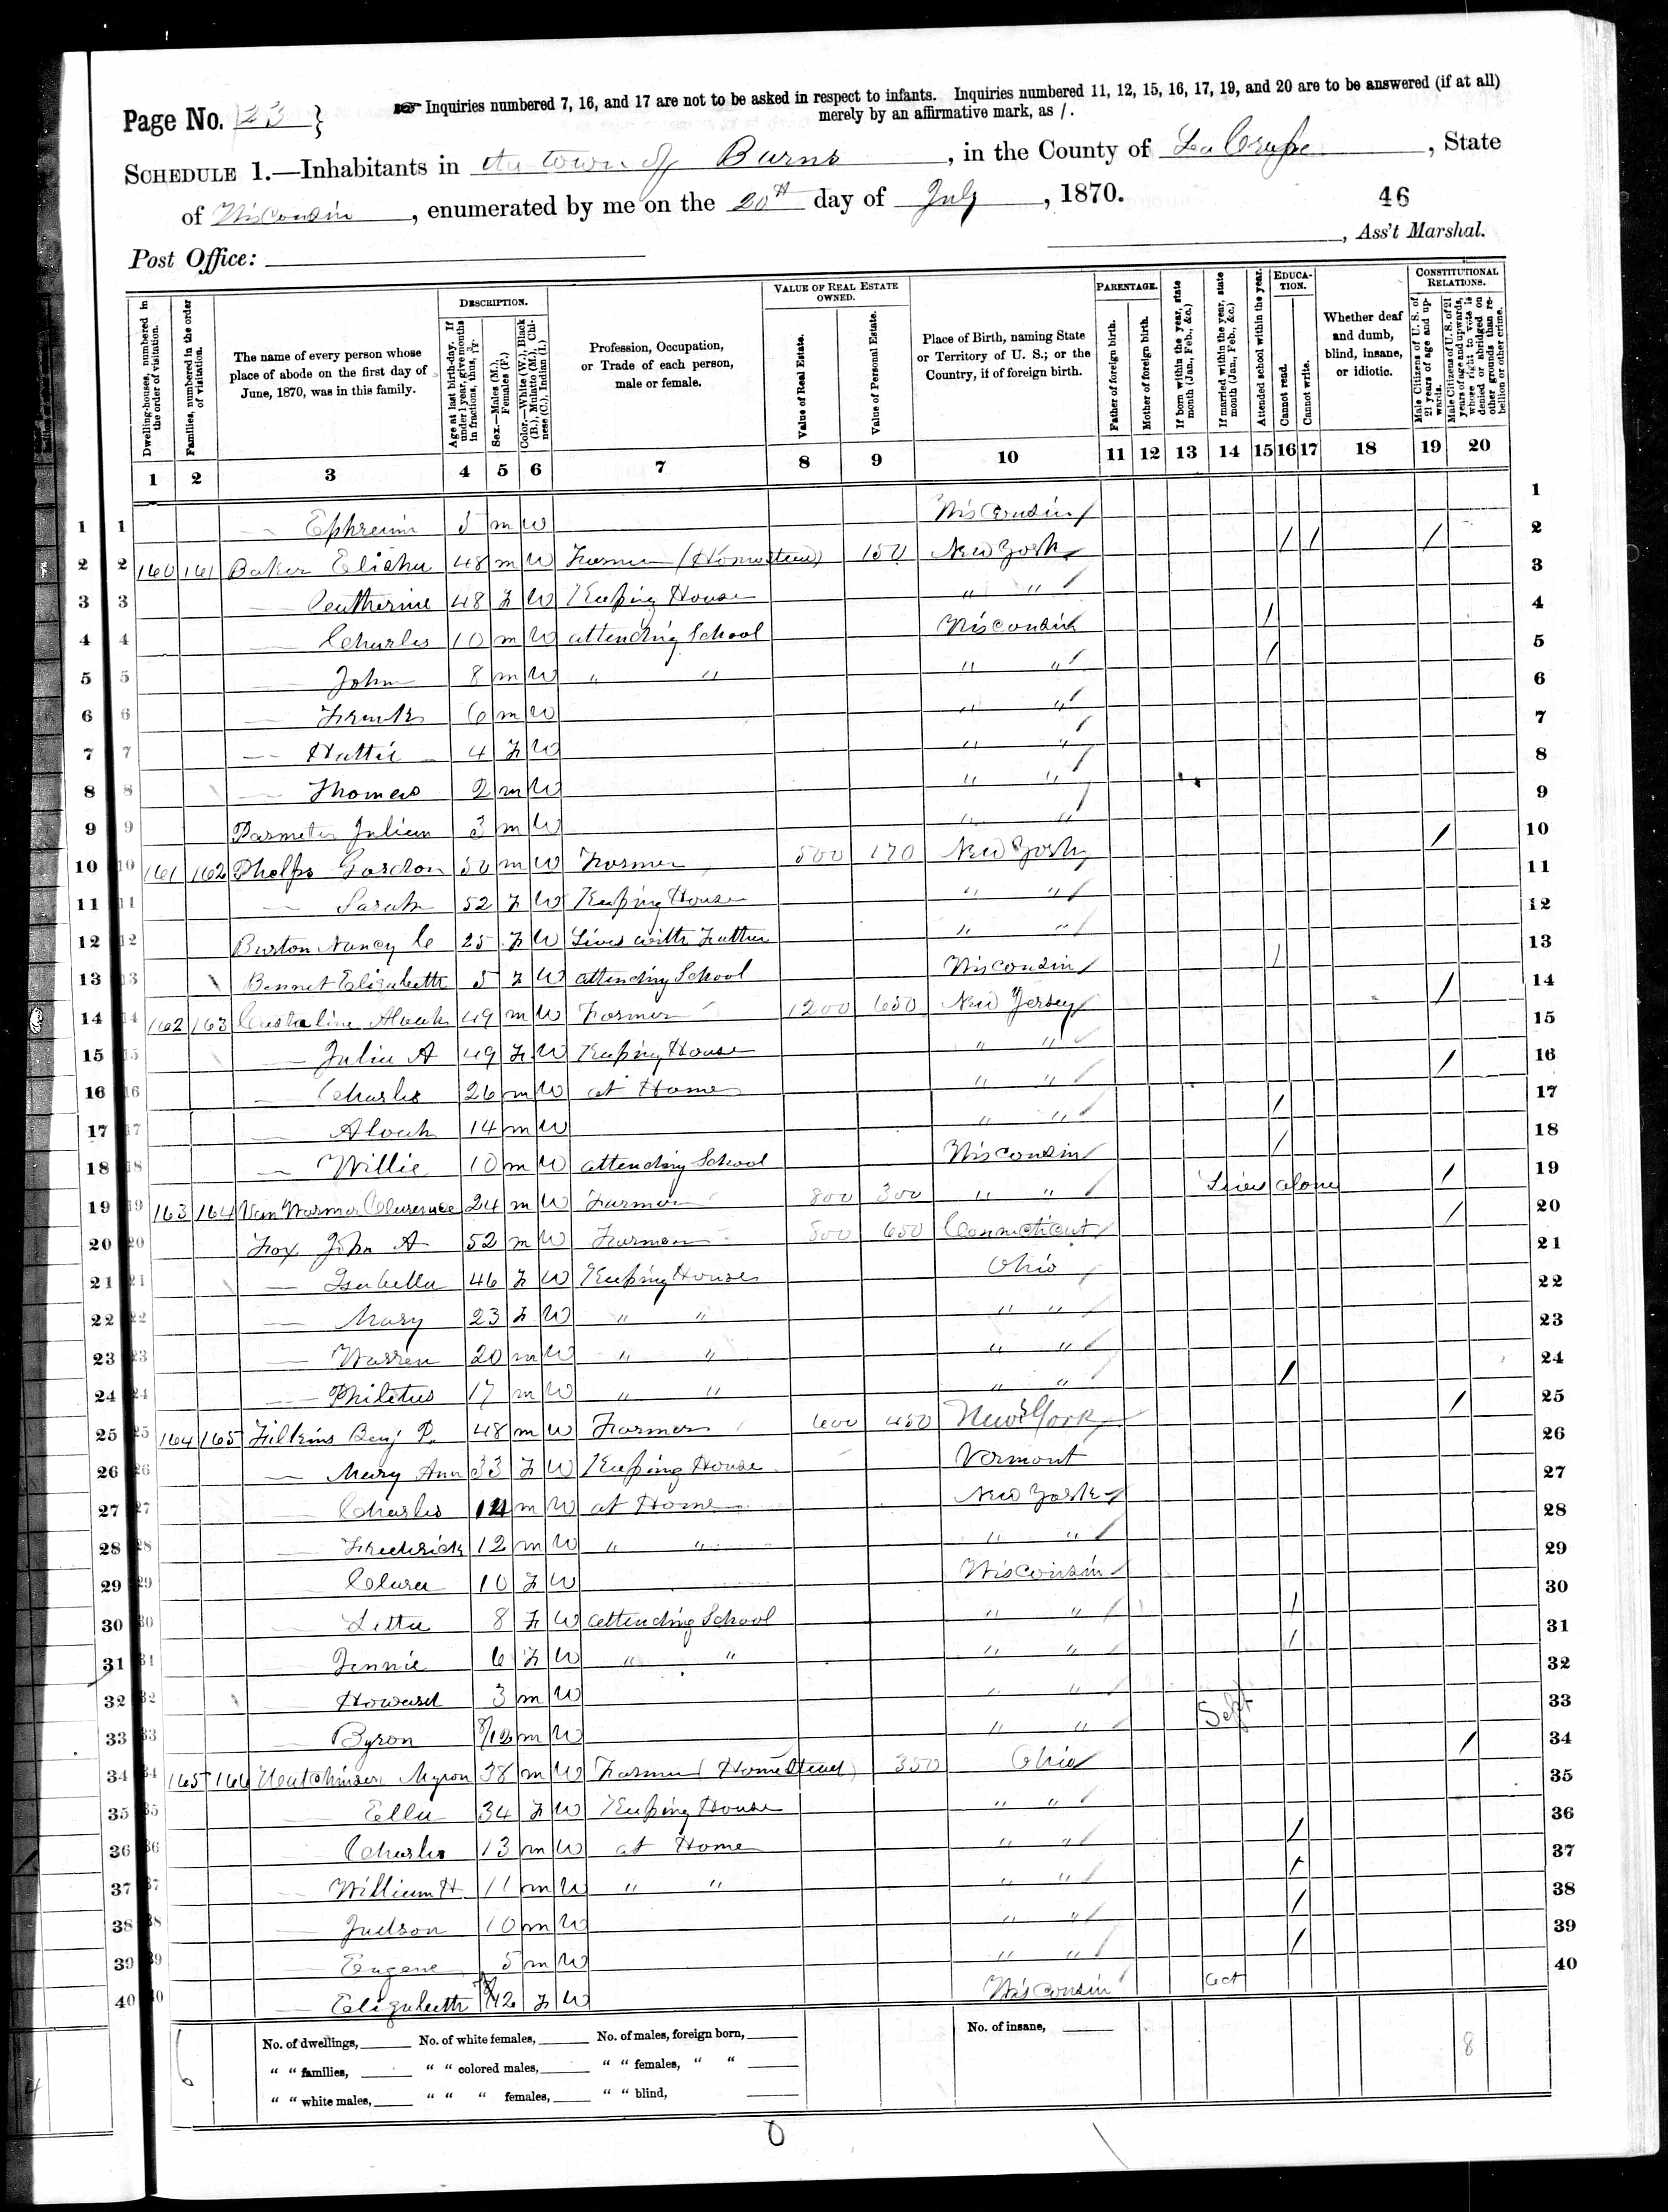 Page No. 23 }
Inquiries numbered 7, 16, and 17 are not to be asked in respect to infants. Inquiries numbered 11, 12, 15, 16, 17, 19, and 20 are to be answered (if at all)
merely by an affirmative mark, as /.
SCHEDULE 1.—Inhabitants in the town of Burns, in the County of La Crosse, State
of Wisconsin, enumerated by me on the 20th day of July, 1870.
46
Post Office:
, Ass't Marshal.
DESCRIPTION.
VALUE OF REAL ESTATE OWNED.
PARENTAGE.
EDUCATION.
CONSTITUTIONAL RELATIONS.
Dwelling-houses, numbered in the order of visitation.
Families, numbered in the order of visitation.
The name of every person whose place of abode on the first day of June, 1870, was in this family.
Age at last birthday. If under 1 year, give months in fractions, thus, 3/12.
Sex.—Males (M.), Females (F.)
Color.—White (W.), Black (B.), Mulatto (M.), Chinese (C.), Indian (I.)
Profession, Occupation, or Trade of each person, male or female.
Value of Real Estate.
Value of Personal Estate.
Place of Birth, naming State or Territory of U. S.; or the Country, if of foreign birth.
Father of foreign birth.
Mother of foreign birth.
If born within the year, state month (Jan., Feb., &c.)
If married within the year, state month (Jan., Feb., &c.)
Attended school within the year.
Cannot read.
Cannot write.
Whether deaf and dumb, blind, insane, or idiotic.
Male Citizens of U. S. of 21 years of age and upwards.
Male Citizens of U. S. of 21 years of age and upwards, whose right to vote is denied or abridged on other grounds than rebellion or other crime.
1 2 3 4 5 6 7 8 9 10 11 12 13 14 15 16 17 18 19 20
1 — Ephreim 5 m W Wisconsin
2 160 161 Baker Elisha 48 m W Farmer (Homestead) 150 New York / / /
3 — Catherine 48 F W Keeping House " "
4 — Charles 10 m W attending School Wisconsin /
5 — John 8 m W " " " " /
6 — Frank 6 m W " "
7 — Hattie 4 F W " "
8 — Thomas 2 m W " "
9 Parmeter Julian 3 m W " "
10 161 162 Phelps Gordon 50 m W Farmer 500 170 New York /
11 — Sarah 52 F W Keeping House " "
12 Burton Nancy C 25 F W Lives with Father " "
13 Bennet Elizabeth 5 F W attending School Wisconsin /
14 162 163 Alvah 49 m W Farmer 1200 650 New Jersey /
15 — Julia A 49 F W Keeping House " "
16 — Charles 26 m W at Home " " /
17 — Alvah 14 m W " " /
18 — Willie 10 m W attending School Wisconsin /
19 163 164 Van Wormer Clarence 24 m W Farmer 800 300 " " Lives alone /
20 Fox John A 52 m W Farmer 500 650 Connecticut /
21 — Isabella 46 F W Keeping House Ohio
22 — Mary 23 F W " " " "
23 — Warren 20 m W " " " "
24 — Philetus 17 m W " " " " /
25 164 165 Filkins Benj P. 48 m W Farmer 600 450 New York /
26 — Mary Ann 33 F W Keeping House Vermont
27 — Charles 14 m W at Home New York
28 — Fredrick 12 m W " " " "
29 — Clara 10 F W Wisconsin
30 — Letta 8 F W attending School " " /
31 — Jennie 6 F W " " " " /
32 — Howard 3 m W " "
33 — Byron 9/12 m W " " Sept
34 165 166 Hutchinson Myron 38 m W Farmer (Homestead) 350 Ohio /
35 — Ella 34 F W Keeping House " "
36 — Charles 13 m W at Home " " /
37 — William H. 11 m W " " " " /
38 — Judson 10 m W " " /
39 — Eugene 5 m W " " /
40 — Elizabeth F W Wisconsin Oct
No. of dwellings, No. of white females, No. of males, foreign born, No. of insane,
" " families, " " colored males, " " females, " "
" " white males, " " " females, " " blind,
6
8